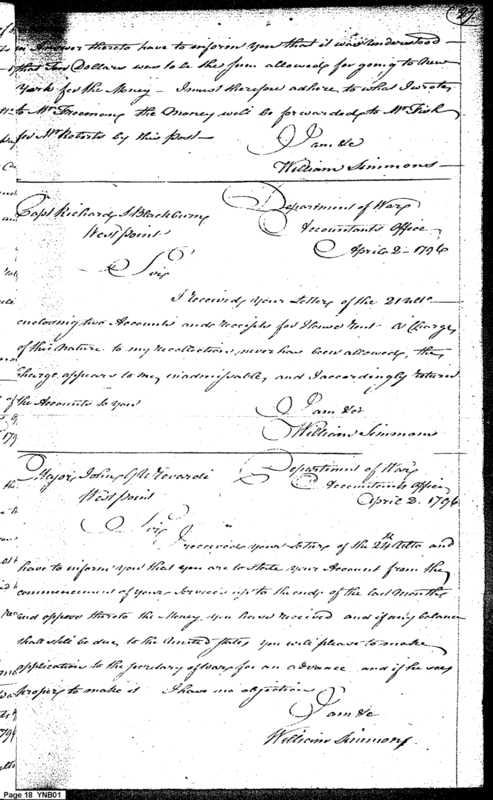 27
in Answer thereto have to inform you that it was understood
that Two Dollars was to be the sum allowed for going to New
York for the Money – I must therefore adhere to what I wrote
to Mr Freeman, the Money will be forwarded to Mr Fish
for Mr Roberts by this post –
I am &c
William Simmons
Capt Richard S Blackburn
West point
Department of War
Accountants Office
April 2 – 1796
Sir
I received your Letter of the 21 ulto
enclosing two Accounts and receipts for House Rent – A Charge
of this nature to my recollection never has been allowed, the
Charge appears to me, inadmissable, and I accordingly return
the Accounts to you
I am &c
William Simmons
Major John J U Rivardi
West point
Department of War
Accountants Office
April 2. 1796
Sir
I received your Letter of the 24th ulto and
have to inform you that you are to state your Account from the
commencement of your Services up to the end of the last Month
and oppose thereto the Money you have received and if any balance
shall still be due to the United States you will please to make
application to the Secretary of War for an advance and if he sees
proper to make it I have no objection
I am &c
William Simmons
Page 18 YNB01